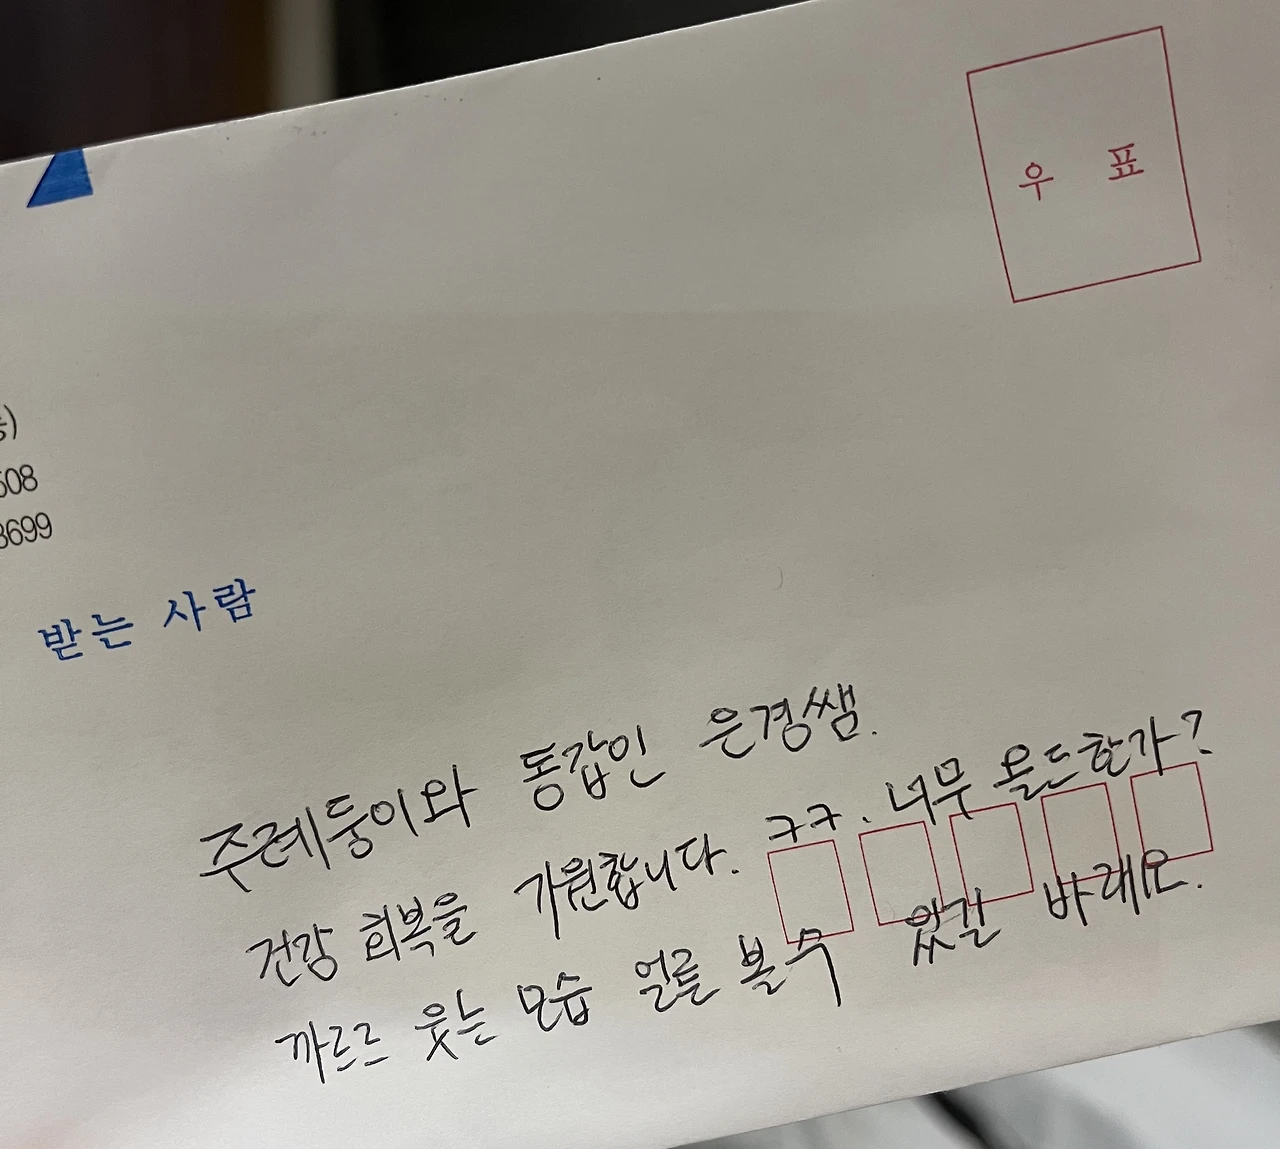 우 표
508
3699
받는 사람
주례둥이와 동갑인 은경쌤.
건강 회복을 기원합니다. ㅋㅋ. 너무 올드한가?
까르르 웃는 모습 얼른 볼 수 있길 바래요.